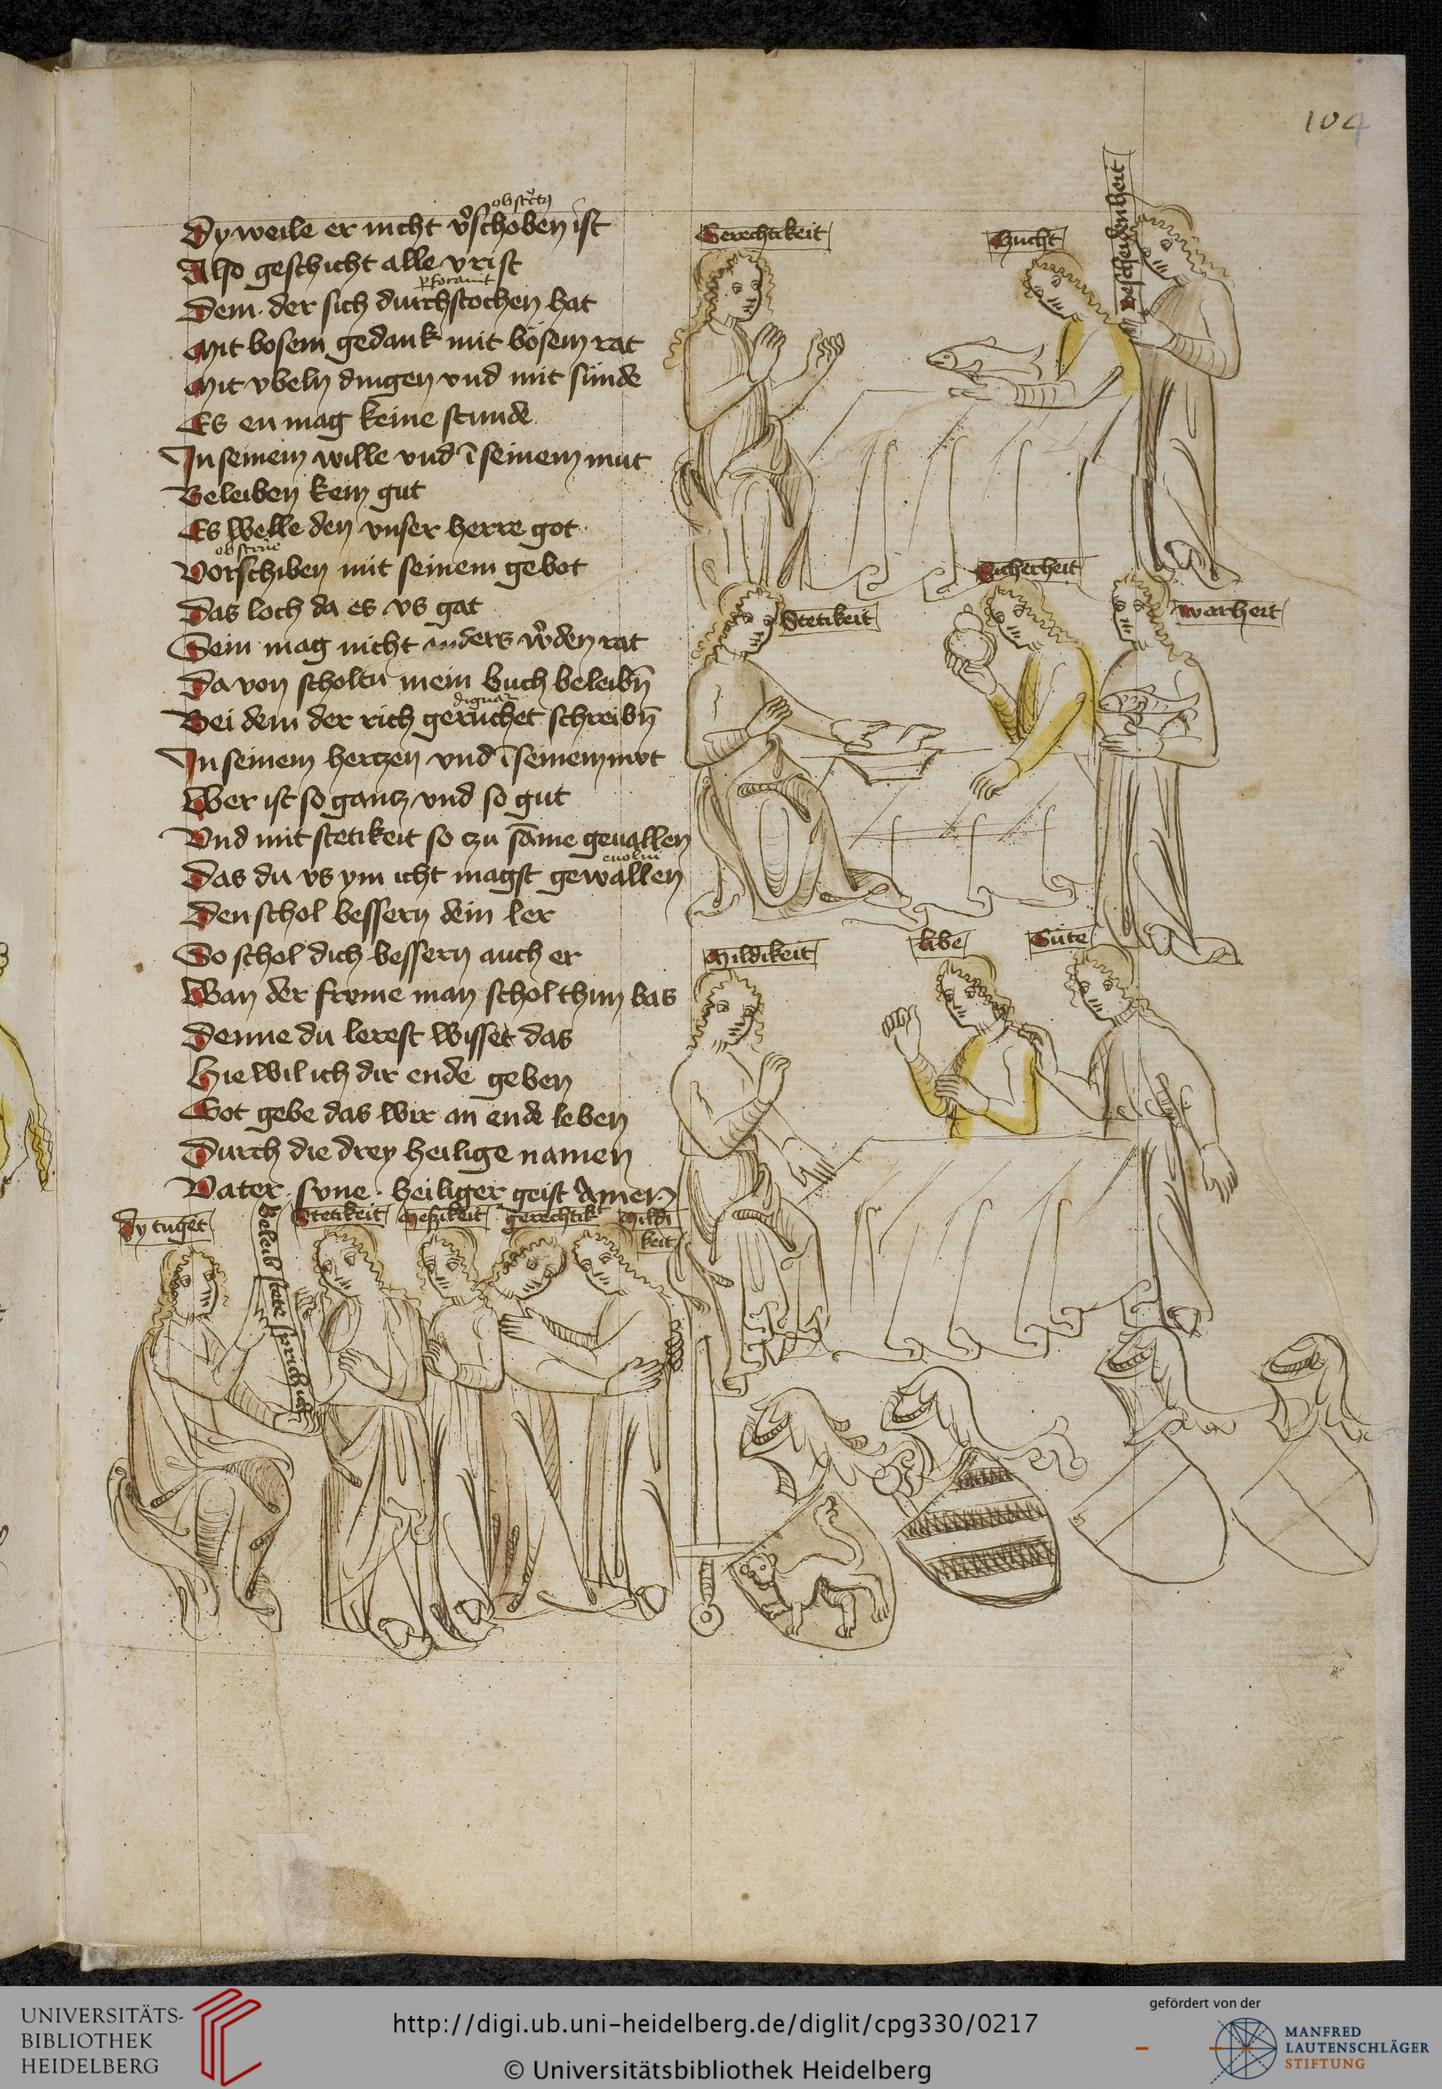 104
obstrctꝫ
Dy weile er nicht v̾schoben ist
Also geschicht alle vrist
ꝑforauit
Dem der sich durchstochen hat
Mit bosem gedank mit bösem rat
Mit vbeln dingen vnd mit sünde
Es en mag keine stunde
In seinem wille vnd ī seinem mut
Beleiben kein gut
Es welle den vnser herre got
obstrue
Vorschiben mit seinem gebot
Das loch da es vs gat
Sein mag nicht anders w̾den rat
Da von scholtu mein buch beleibn̄
Bei dem der rich geruchet schreibn̄
In seinem hertzen vnd ī seinem mvt
Wer ist so gantz vnd so gut
Vnd mit stetikeit so zu sāme geuallen
Das du vs ym icht magst gewallen
Den schol bessern dein ler
So schol dich bessern auch er
Wan der frome man schol thun bas
Denne du lerest wisset das
Hie wil ich dir ende geben
Got gebe das wir an ende leben
Durch die drey heilige namen
Vater · sune · heiliger geist Amen
Gerechtikeit
Zucht
Bescheidenheit
Stetikeit
Sicherheit
Warheit
Mildikeit
libe
Güte
Dy tuget
beleib stete sprich ich
Stetikeit
Meszikeit
gerechtik
Mildi
keit
UNIVERSITÄTS-
BIBLIOTHEK
HEIDELBERG
http://digi.ub.uni-heidelberg.de/diglit/cpg330/0217
© Universitätsbibliothek Heidelberg
gefördert von der
MANFRED
LAUTENSCHLÄGER
STIFTUNG